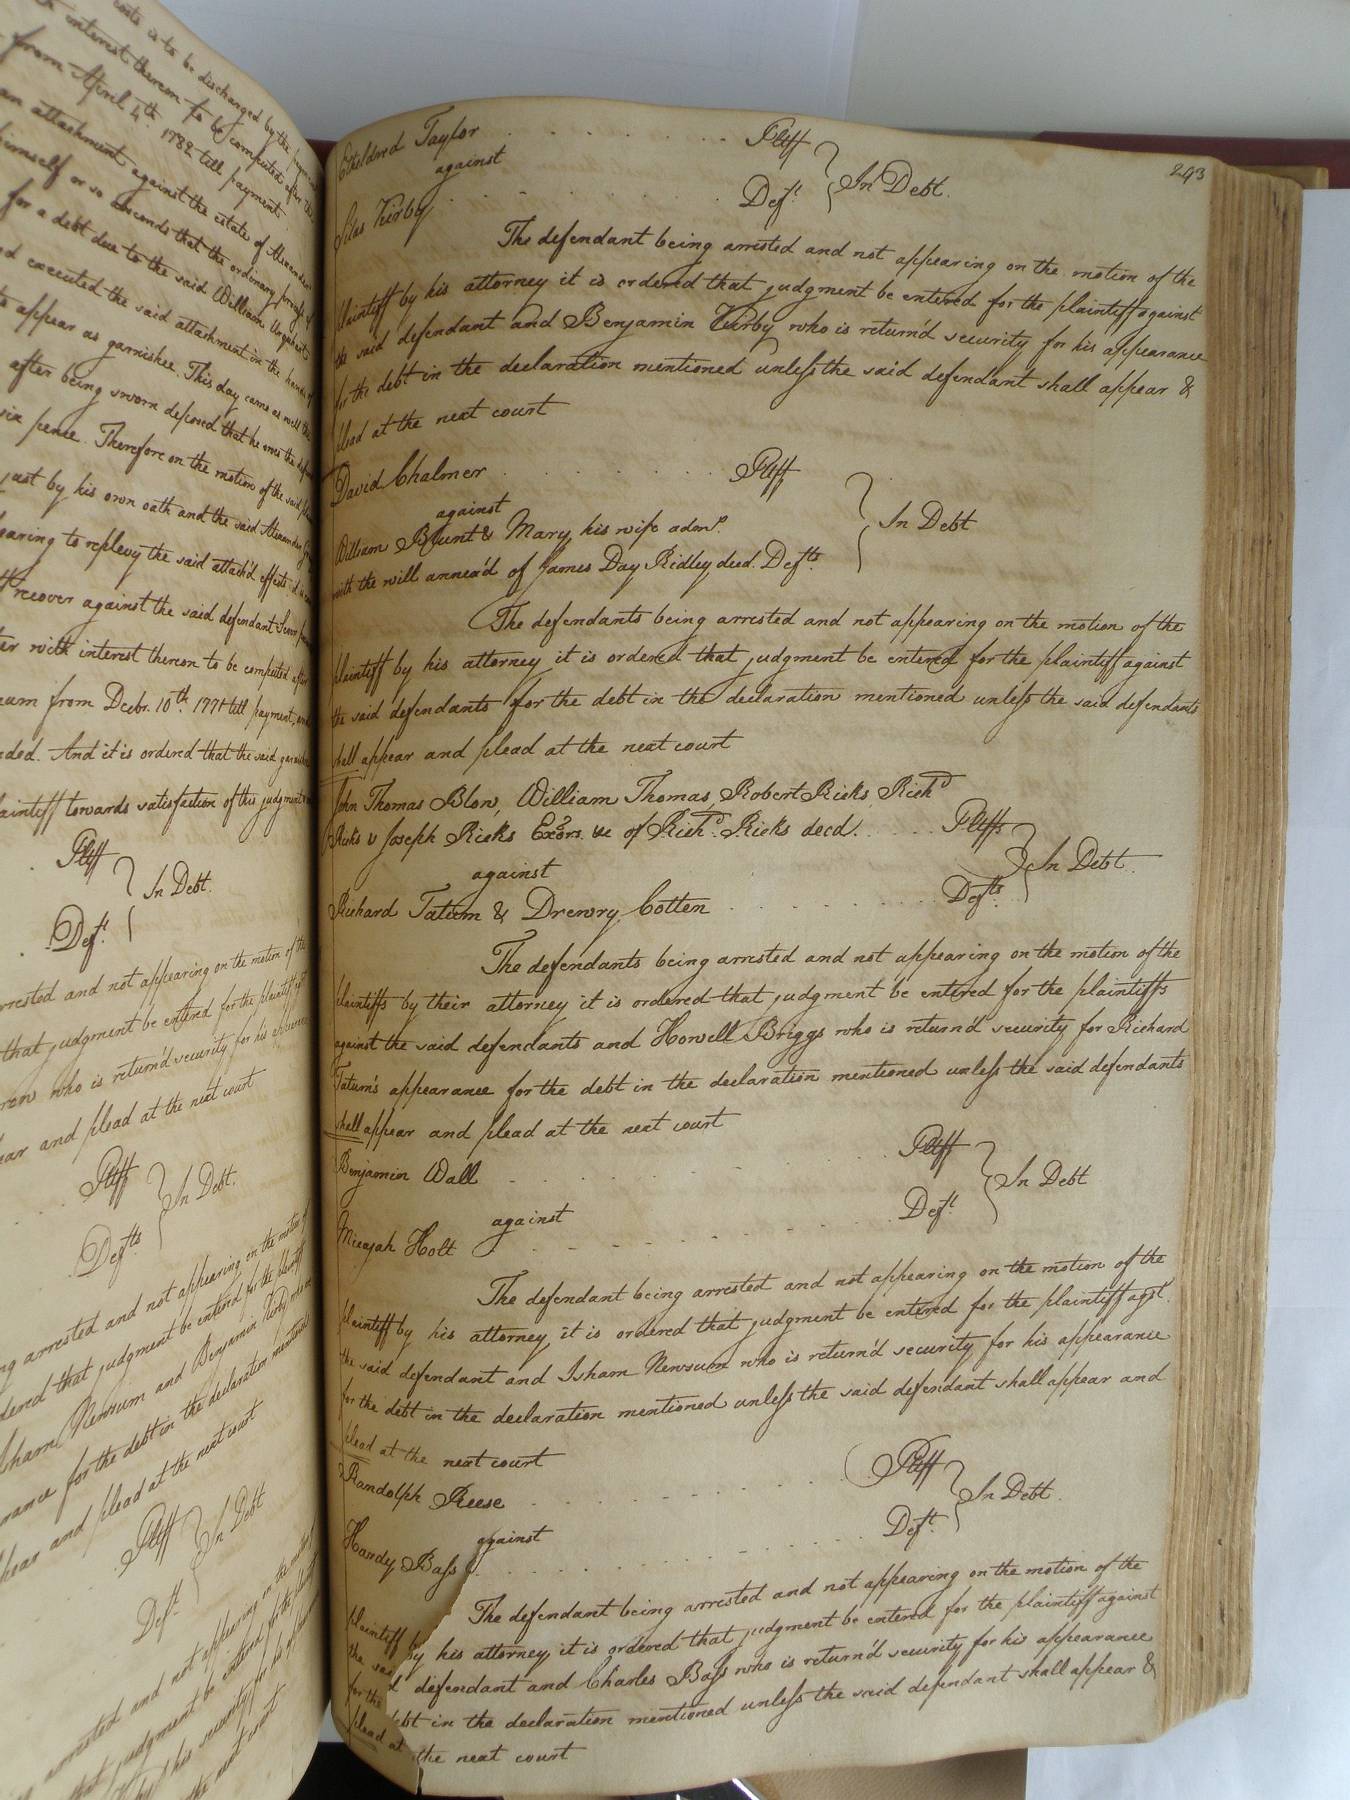 costs is to be discharged by the
interest thereon to be computed after the
from April 4th. 1782 till payment.
an attachment against the estate of Alexander
himself or so absconds that the ordinary process of
for a debt due to the said William Urquhart
executed the said attachment in the hands of
to appear as garnishee. This day came as well the
after being sworn deposed that he owes the
six pence. Therefore on the motion of the said
just by his own oath and the said Alexander
to replevy the said attach'd effects it is
recover against the said defendant
with interest thereon to be computed after
from Decbr. 10th. 1771 till payment, and
And it is ordered that the said
plaintiff towards satisfaction of this judgment
Pltff
In Debt.
Deft.
arrested and not appearing on the motion of the
that judgment be entered for the plaintiff
who is return'd security for his appearance
and plead at the next court
Pltff
In Debt.
Defts
arrested and not appearing on the motion of
that judgment be entered for the plaintiff
Isham Newsum and Benjamin Kirby who
for the debt in the declaration mentioned
and plead at the next court
Pltff
In Debt
Deft.
arrested and not appearing on the
that judgment be entered for the
his security for his
the next court
293
Etheldred Taylor . . . . Pltff
against
In Debt.
Silas Kirby . . . . Deft.
The defendant being arrested and not appearing on the motion of the
plaintiff by his attorney it is ordered that judgment be entered for the plaintiff against
the said defendant and Benjamin Kirby who is return'd security for his appearance
for the debt in the declaration mentioned unless the said defendant shall appear &
plead at the next court
David Chalmer . . . . Pltff
against
In Debt
William Blunt & Mary his wife admr.
with the will annex'd of James Day Ridley decd. Defts.
The defendants being arrested and not appearing on the motion of the
plaintiff by his attorney it is ordered that judgment be entered for the plaintiff against
the said defendants for the debt in the declaration mentioned unless the said defendants
shall appear and plead at the next court
John Thomas Blow, William Thomas, Robert Ricks, Richd
Ricks & Joseph Ricks Exors. &c of Richd. Ricks decd. . . . . Pltffs
against
In Debt.
Richard Tatum & Drewry Cotten . . . . Defts.
The defendants being arrested and not appearing on the motion of the
plaintiffs by their attorney it is ordered that judgment be entered for the plaintiffs
against the said defendants and Howell Briggs who is return'd security for Richard
Tatum's appearance for the debt in the declaration mentioned unless the said defendants
shall appear and plead at the next court
Benjamin Wall . . . . Pltff
against
In Debt
Micajah Holt . . . . Deft.
The defendant being arrested and not appearing on the motion of the
plaintiff by his attorney it is ordered that judgment be entered for the plaintiff agst.
the said defendant and Isham Newsum who is return'd security for his appearance
for the debt in the declaration mentioned unless the said defendant shall appear and
plead at the next court
Randolph Reese . . . . Pltff
against
In Debt.
Hardy Bass . . . . Deft.
The defendant being arrested and not appearing on the motion of the
plaintiff by his attorney it is ordered that judgment be entered for the plaintiff against
the said defendant and Charles Bass who is return'd security for his appearance
for the debt in the declaration mentioned unless the said defendant shall appear &
plead at the next court